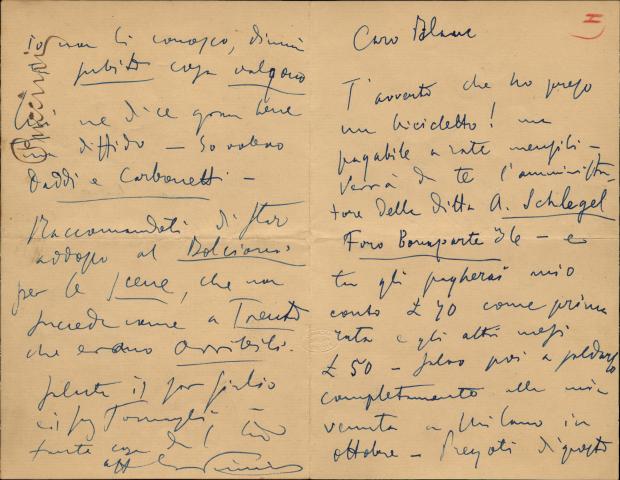 Caro Blanc
T'avverto che ho preso
un bicicletto! ma
pagabile a rate mensili -
Verrà da te l'amministra-
tore della ditta A. Schlegel
Foro Bonaparte 36 - e
tu gli pagherai mio
conto £ 70 come prima
rata e gli altri mesi
£ 50 - salvo poi a saldarlo
completamente alla mia
venuta a Milano in
ottobre - Pregoti di questo
io non li conosco, dimmi
subito cosa valgono
ne dice gran bene
diffido - Io volevo
Daddi e Carbonetti -
Raccomandati di star
addosso al
per le scene, che non
succeda come a Trento
che erano orribili.
Saluta il
il sig Tornaghi
tante cose dal tuo
aff